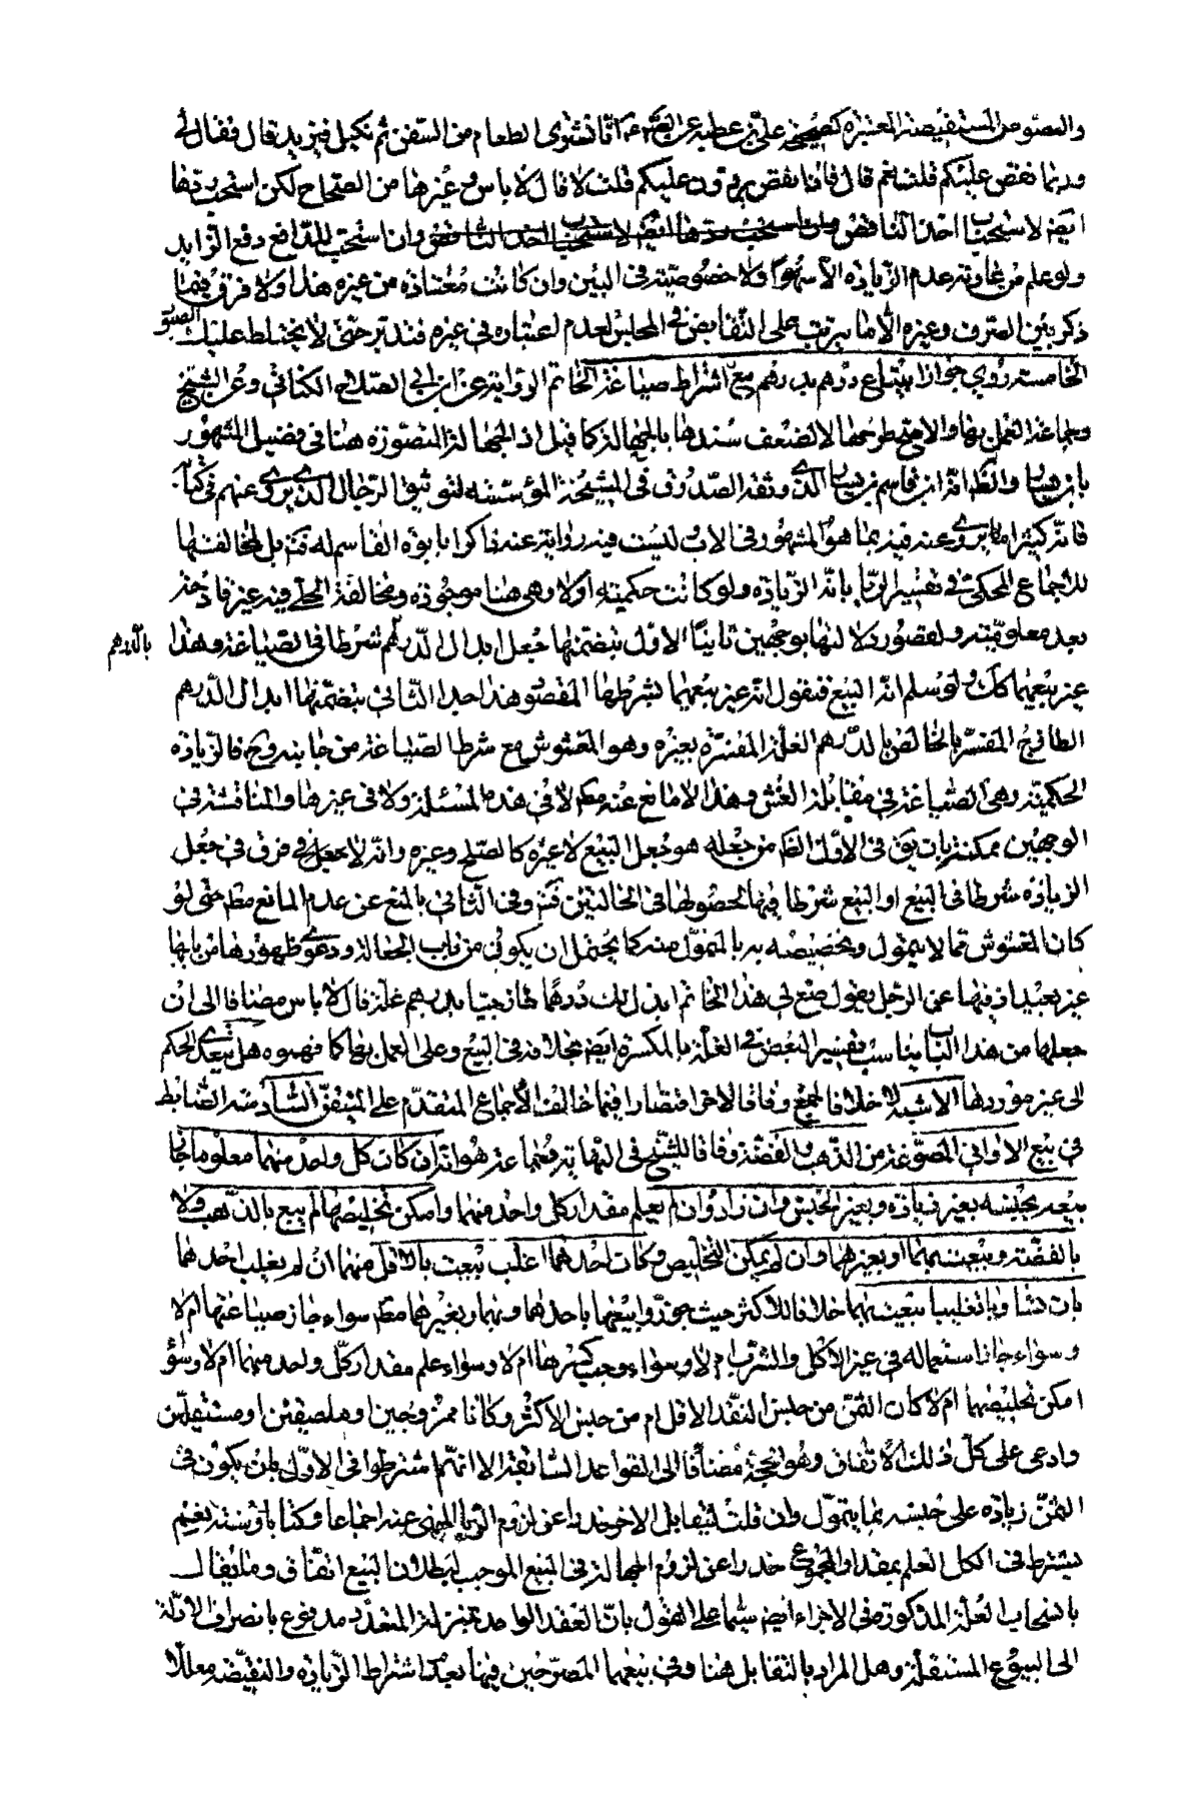 والنصوص المستفيضة المعتبرة كصحيحة علي بن عطية عن الصّ ع انّا نشتري الطعام من السّفن ثم نكيل فيزيد قال فقال لي
وربما نقص عليكم قلت نعم قال فاذا نقص يردّون عليكم قلت لا قال لا باس وغيرها من الصّحاح لكن استحب ردّها
ايضا لا سيحب اخذ الناقص وان استحب ردّها ايضا لا يستحب اخذ الناقص وان استحب للدافع دفع الزايد
ولو علم من عادته عدم الزيادة الا سهوا ولا خصوصيّة في البين وان كانت معتادة من غيره هذا ولا فرق فيما
ذكر بين الصرف وغيره الا ما يترتب على التقابض في المجلس لعدم اعتباره في غيره فتدبّر حتّى لا يختلط عليك الصور
الخامسة روي جواز ابتياع درهم بدرهم مع اشتراط صياغة الخاتم الرواية عن ابي الصّلاح الكناني وعن الشيخ
وجماعة العمل بها والاصحّ طرحها لا لضعف سندها بالجهالة كما قيل اذ الجهالة المتصوّرة هنا في فضيل المشهور
بابن يسار والظّ انه ابن قاسم بن يسار الذي وثقه الصّدوق في المشيخة
فانّه كثيرا ما يروي عنه فيه بما هو المشهور في الاب ليست فيه رواية عنه ذاكرا بابوّة القاسم له فتدبر بل لمخالفتها
للاجماع المحكي في تفسير الربا بانه الزيادة ولو كانت حكمية اولا وهي هنا موجودة ومخالفة الحلّي فيه غير قادحة
بعد معلوميّته ولقصور دلالتها بوجهين ثانيا الاوّل بتضمنها جعل ابدال الدّرهم شرطا في الصّياغة وهذا بالدرهم
غير بيعهما كك ولو سلم انه البيع فنقول انه غير بيعهما بشرطها المقصود هذا احد الثاني بتضمنها ابدال الدّرهم
الطازج المفسّر بالخالص بالدّرهم الغلّة المفسّرة بغيره وهو المغشوش مع شرط الصّياغة من جانبه فالزيادة
الحكمية وهي الصّياغة في مقابلة الغش وهذا لا مانع عنه لا في هذه المسئلة ولا في غيرها والمناقشة في
الوجهين ممكنة بان يق في الاوّل الظّ من جعله هو جعل البيع لا غيره كالصلح وغيره وانه لا فرق في جعل
الزيادة شرطا في البيع او البيع شرطا فيها لحصولها في الحالتين فتدبر وفي الثاني بالمنع عن عدم المانع مطلقا حتى لو
كان المغشوش مما لا يتمول وتخصيصه به بالمتموّل منه كما يحتمل ان يكون من باب الجعالة ودعوى ظهورها من بابها
غير بعيد اذ فيها عن الرجل يقول صغ لي هذا الخاتم ابذل لك درهما طازجيّا بدرهم غلة قال لا باس مضافا الى ان
جعلها من هذا الباب يناسب تفسير البعض في الغلة بالمكسرة ايضا بخلافه في البيع وعلى العمل بها كما فهموه هل يتعدى الحكم
الى غير موردها الاشبه لا خلافا لجمع ووفاقا لاخر اقتصارا فيما خالف الاجماع المتقدّم على المتيقّن السّادسة الضّابط
في بيع الاواني المصوغة من الذهب والفضّة وفاقا للشيخ في النهاية وجماعة هو انه ان كان كل واحد منهما معلوما جاز
بيعه بجنسه بغير زيادة وبغير الجنس وان زاد وان لم يعلم مقدار كل واحد منهما وامكن تخليصها لم يبع بالذّهب ولا
بالفضّة وبيعت بهما او بغيرهما وان لم يمكن التخليص وكان احدهما اغلب بيعت بالاقلّ منهما ان لم يغلب احدهما
بان تساويا تغليبا بيعت بهما خلافا للاكثر حيث جوزوا بيعها باحدهما وبهما وبغيرهما مطلقا سواء جاز صياغتها ام لا
وسواء جاز استعماله في غير الاكل والشرب ام لا وسواء وجب كسرها ام لا وسواء علم مقدار كلّ واحد منهما ام لا وسواء
امكن تخليصهما ام لا كان الثمن من جنس النقد الاقل ام من جنس الاكثر وكانا ممزوجين او ملصقين او مستقلين
وادعى على كلّ ذلك الاتفاق وهو الحجّة مضافا الى القواعد السّابقة الا انّهم شرطوا في الاوّل بان يكون في
الثمن زيادة على جنسه بما يتموّل وان قلت لتقابل الاخر حذرا عن لزوم الرّبا المنهي عنه اجماعا وكتابا وسنة نعم
يشترط في الكل العلم بمقدار المجموع حذرا عن لزوم الجهالة في البيع الموجب لبطلان البيع اتفاقا وما يقال
بانسحاب العلّة المذكورة في الاجزاء ايضا سيّما على القول بانّ العقد الواحد بمنزلة المتعدّد مدفوع بانصراف الادلّة
الى البيوع المستقلّة وهل المراد بالتقابل هنا وفي بيعهما المصرّحين فيها بعدم اشتراط الزيادة والنقيصة معللا